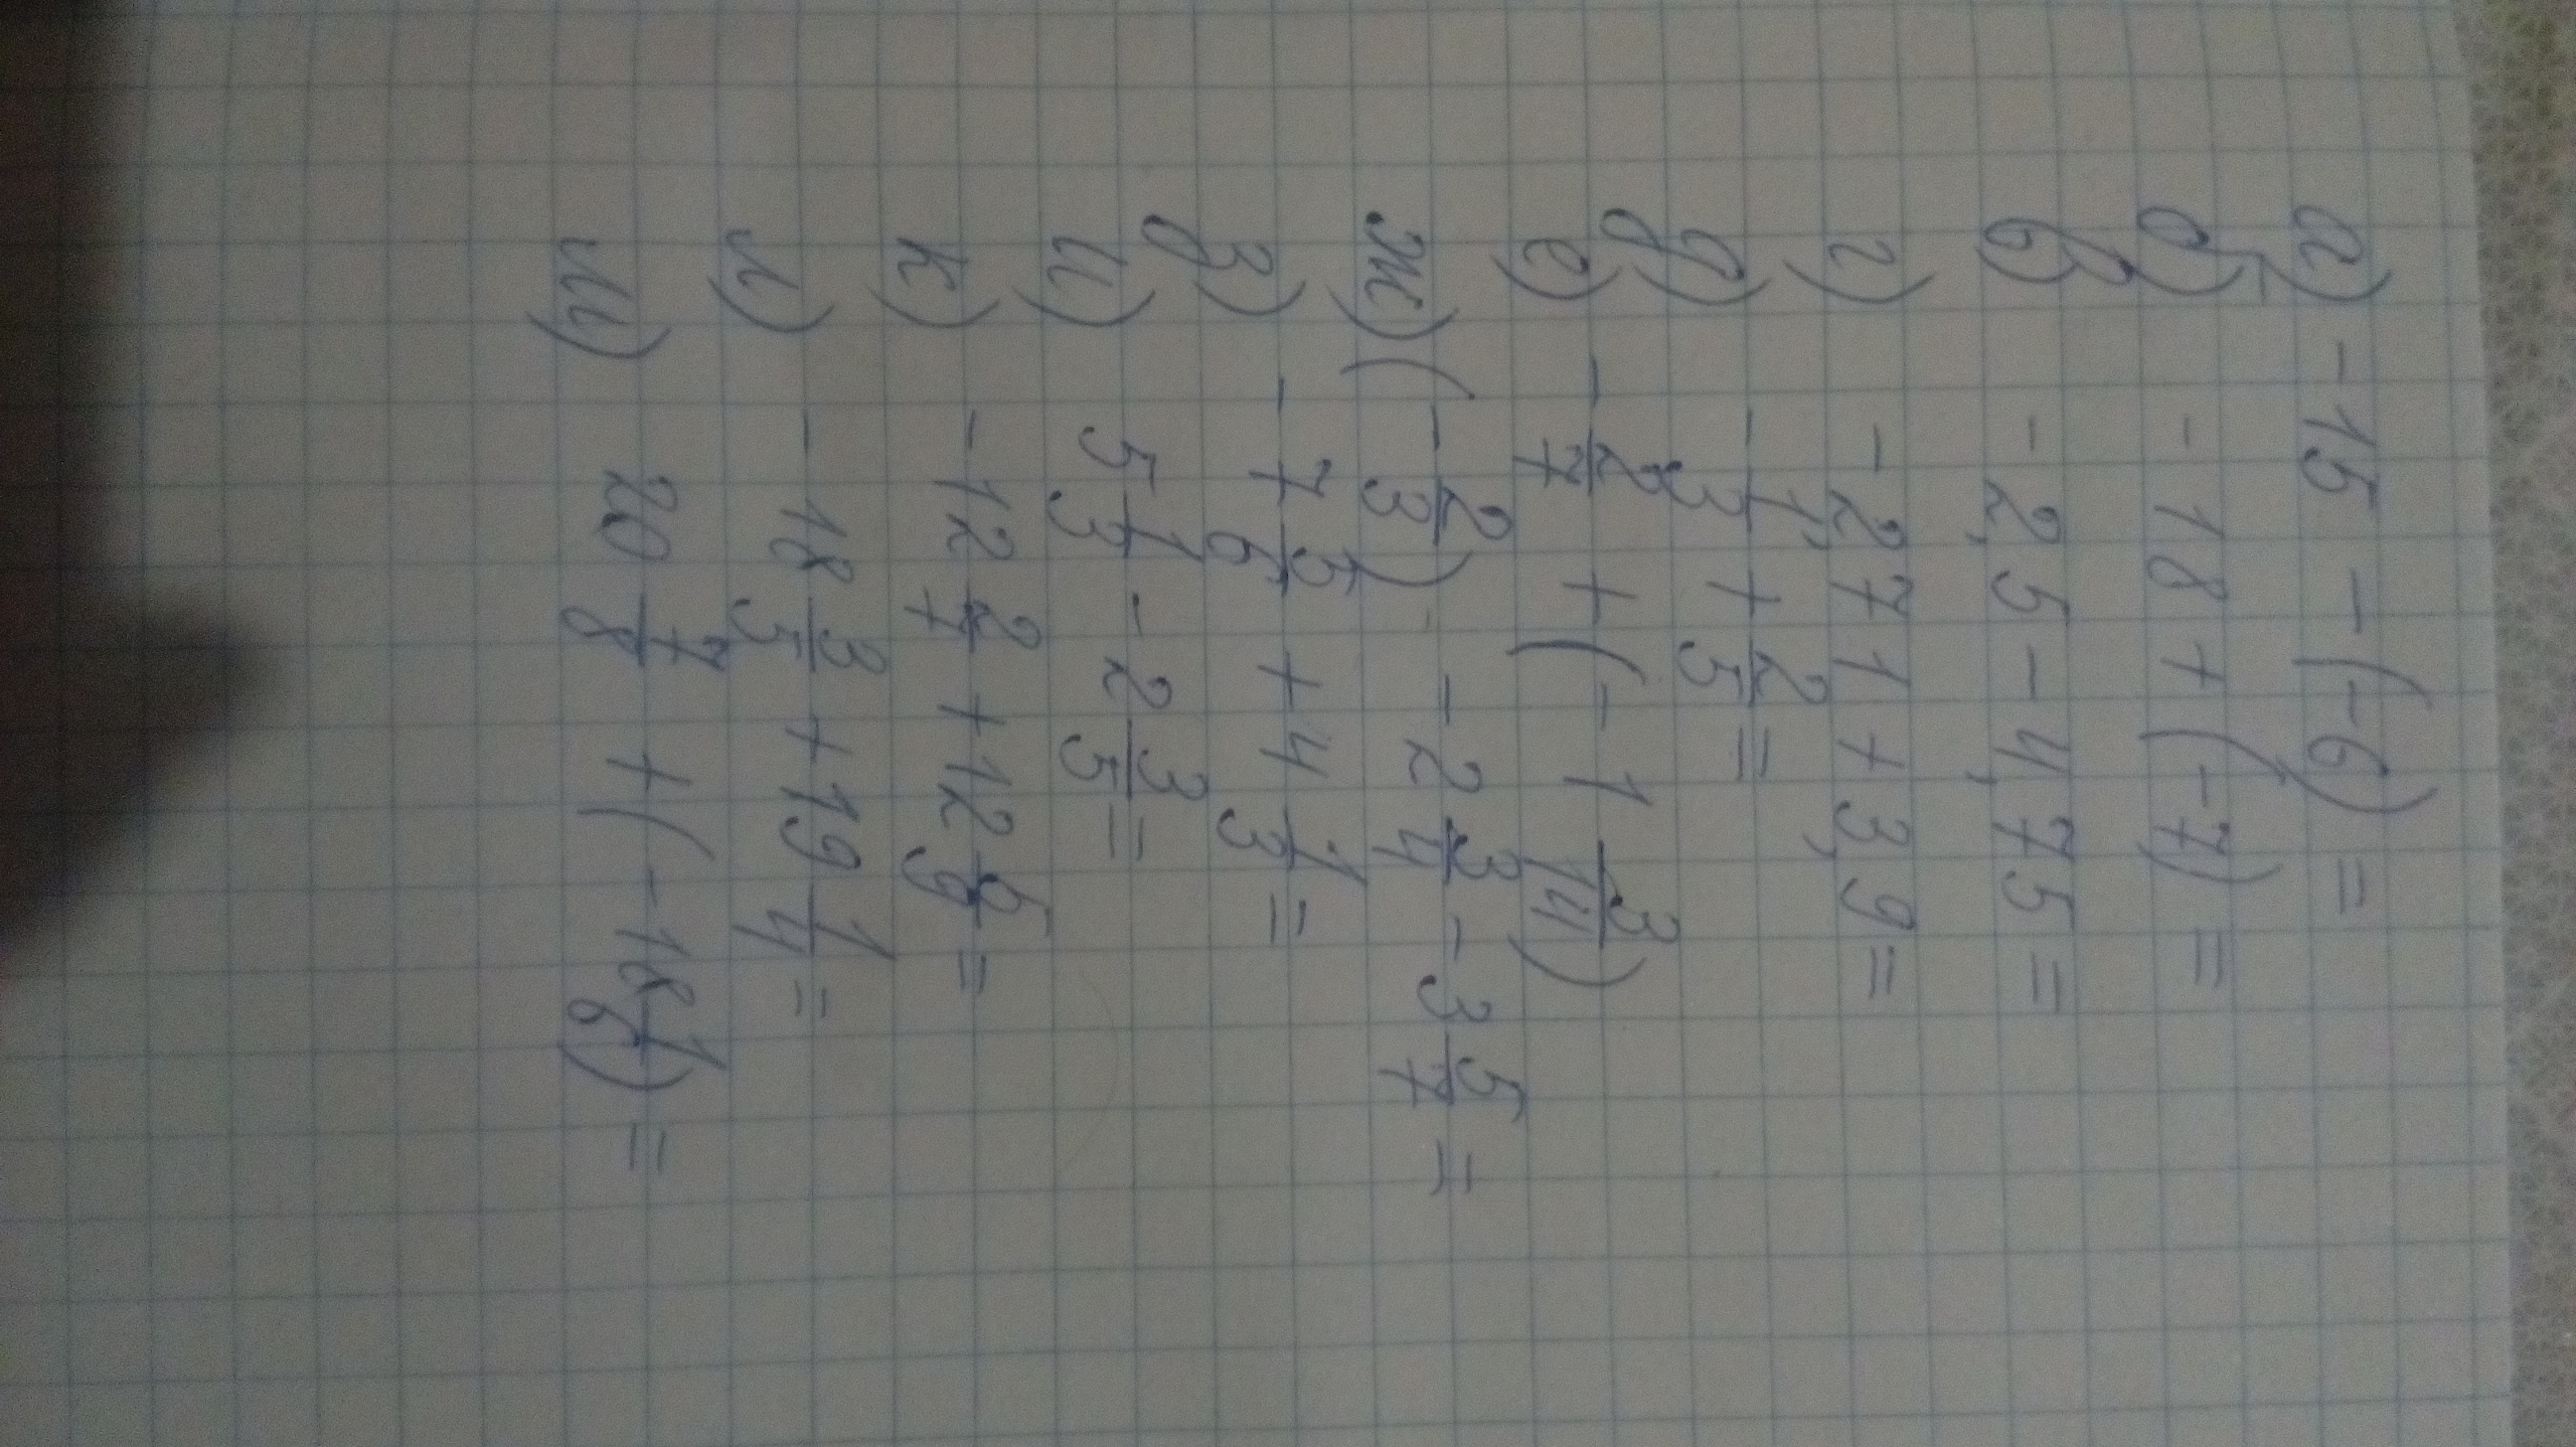 а) -15 - (-6) =
б) -18 + (-7) =
в) -2,5 - 4,75 =
г) -2,71 + 3,9 =
д) -1/3 + 2/5 =
е) -2/7 + (-1 3/14)
ж) (-2/3) - 2 3/4 - 3 5/7 =
з) -7 5/6 + 4 1/3 =
и) 5 1/3 - 2 3/5 =
к) -12 2/7 + 12 5/9 =
л) -18 3/5 + 19 1/4 =
м) 20 7/8 + (-18 1/6) =